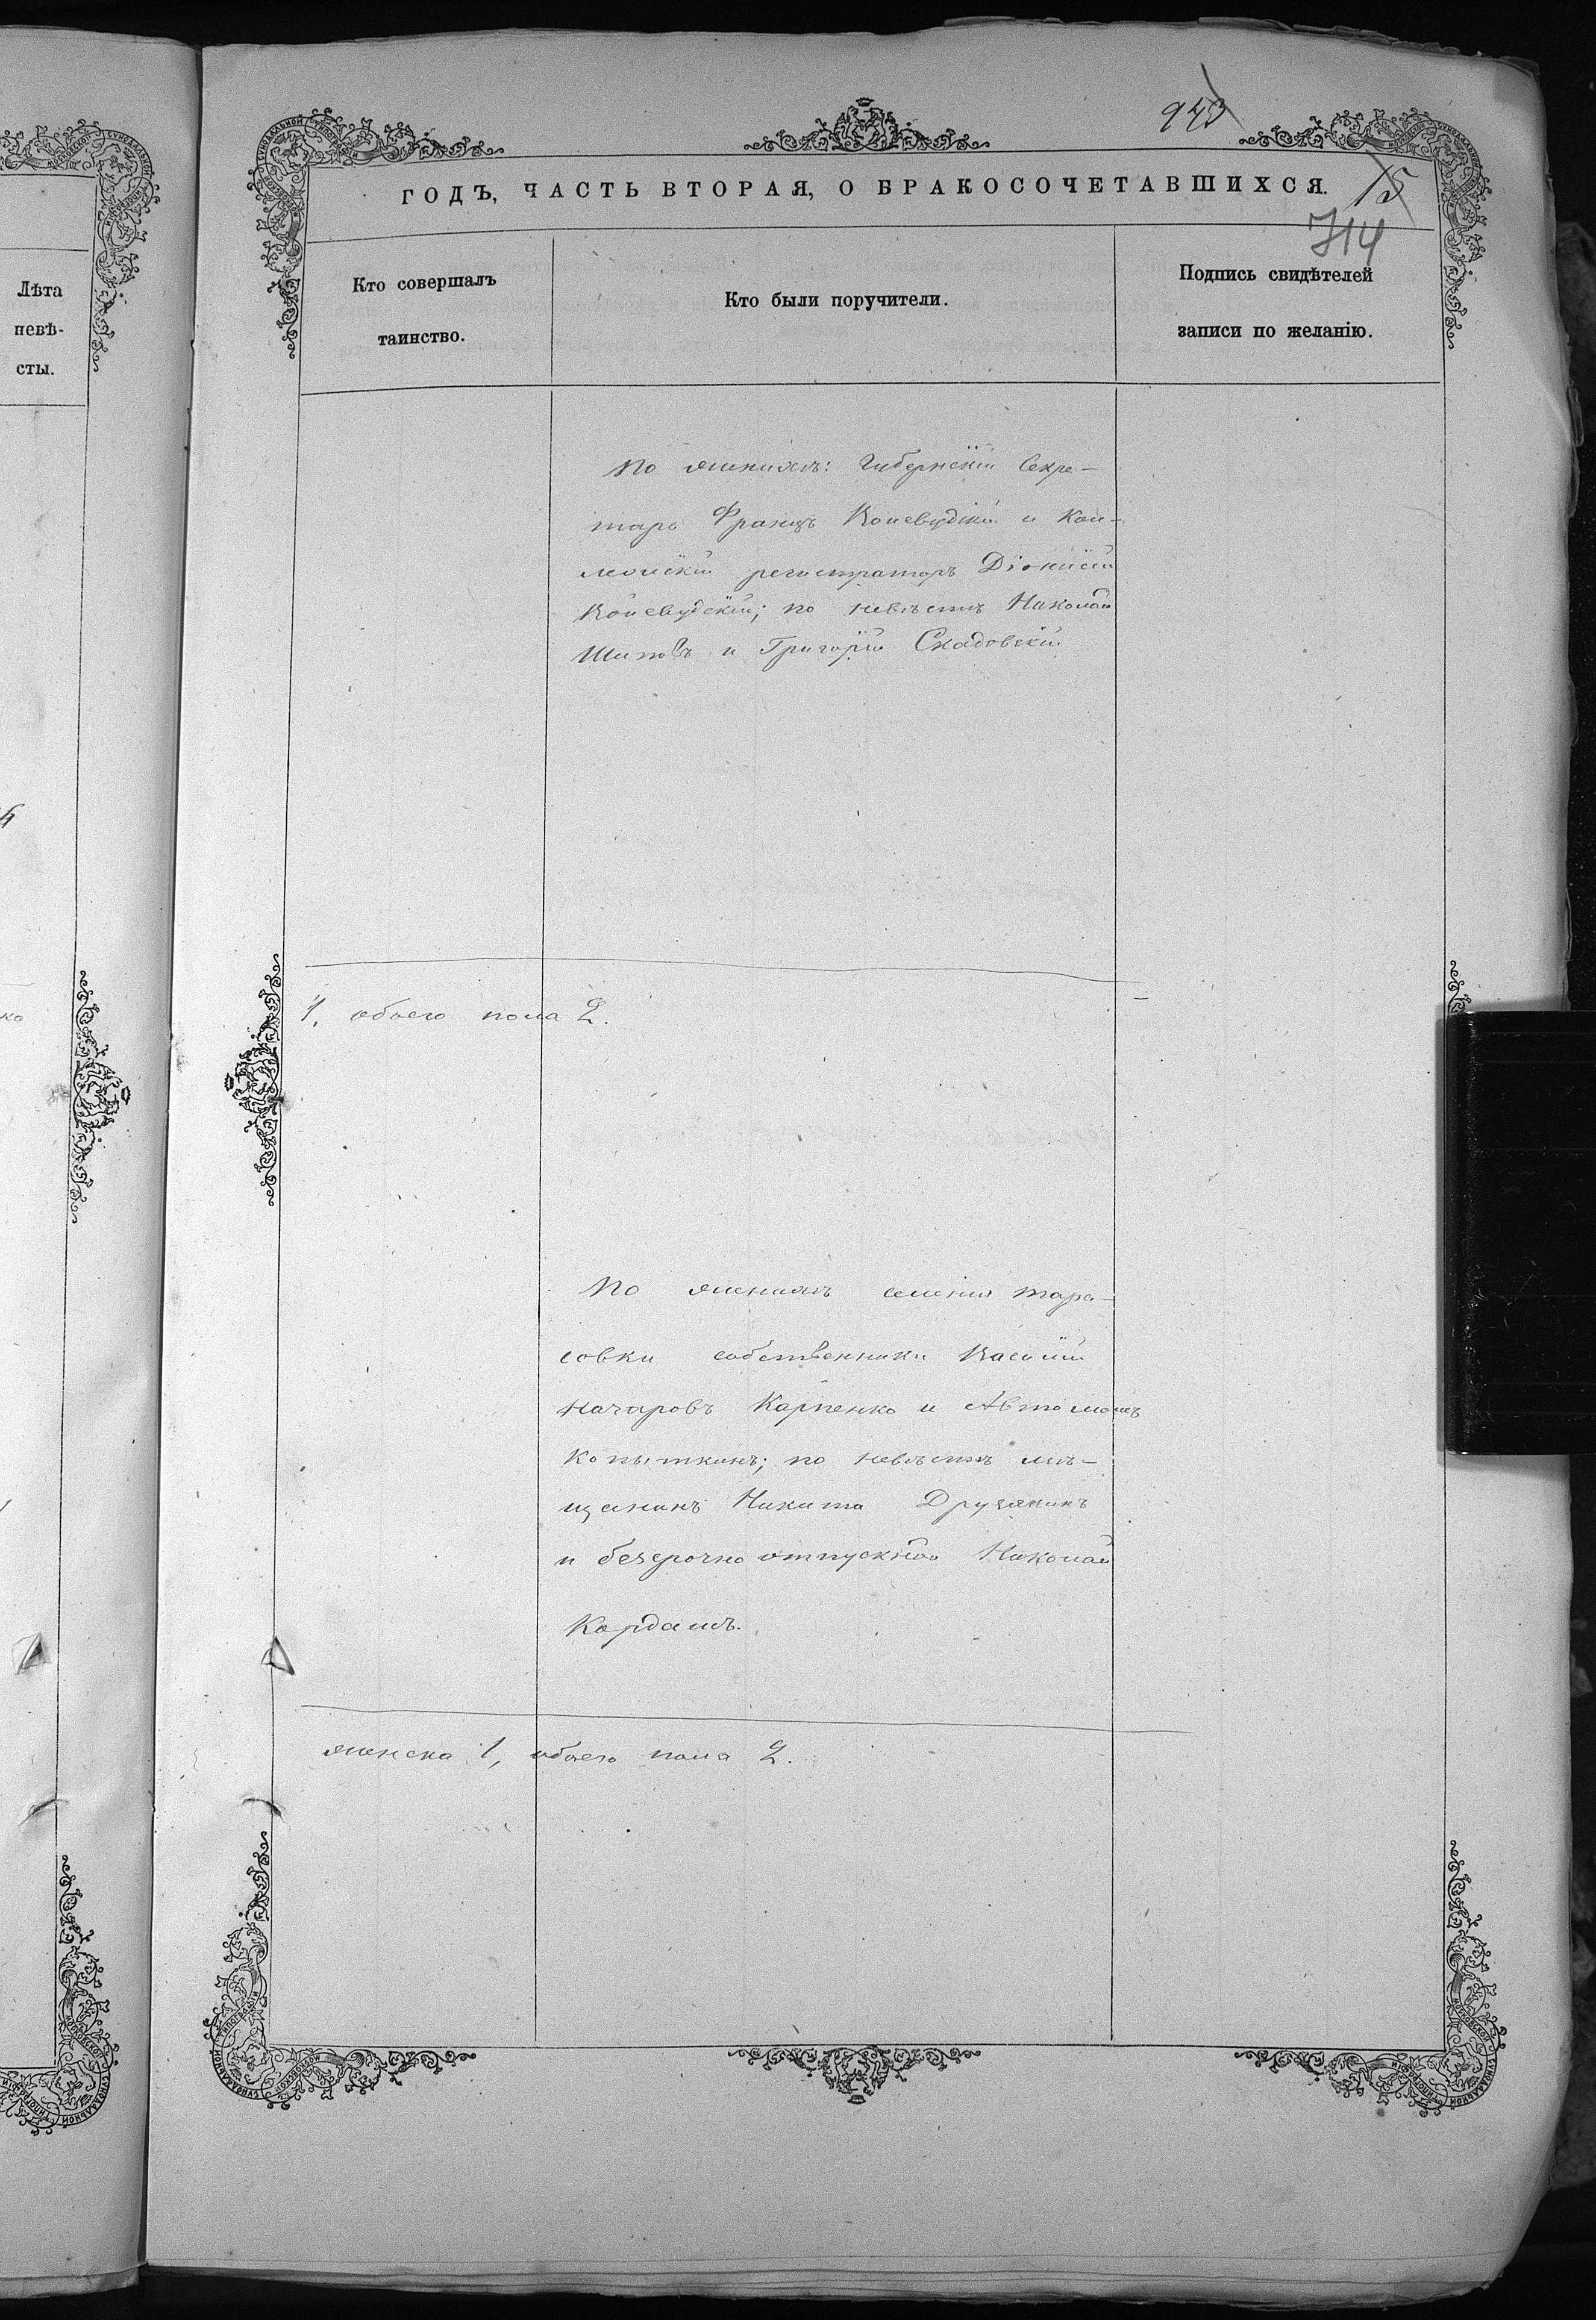 943
ГОДЪ, ЧАСТЬ ВТОРАЯ, О БРАКОСОЧЕТАВШИХСЯ.
15
714
Лѣта
невѣ-
сты.
Кто совершалъ
таинство.
Кто были поручители.
Подпись свидѣтелей
записи по желанію.
По женихѣ: Губернскій Секре-
тарь Францъ и Кол-
лежскій регистраторъ Діонисій
по невѣстѣ Николай
Шиповъ и Григорій Скадовскій
1, обоего пола 2.
По женихѣ селенія Тара-
совки собственники Василій
Назаровъ Карпенко и Автомонъ
Копыткинъ; по невѣстѣ мѣ-
щанинъ Никита Друзякинъ
и безсрочно отпускной Николай
Кардашъ.
женска 1, обоего пола 2.